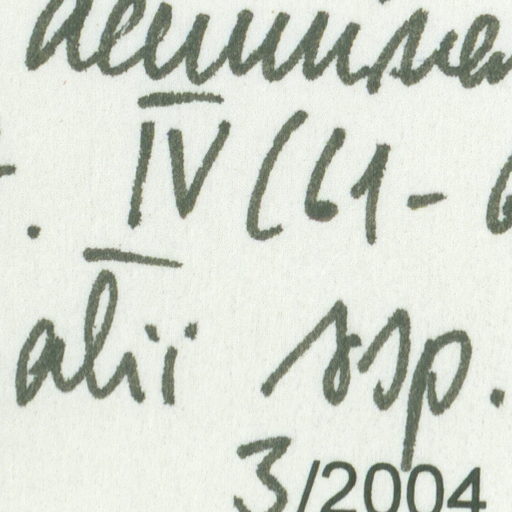 . IV (61-6
alii ssp.
3/2004